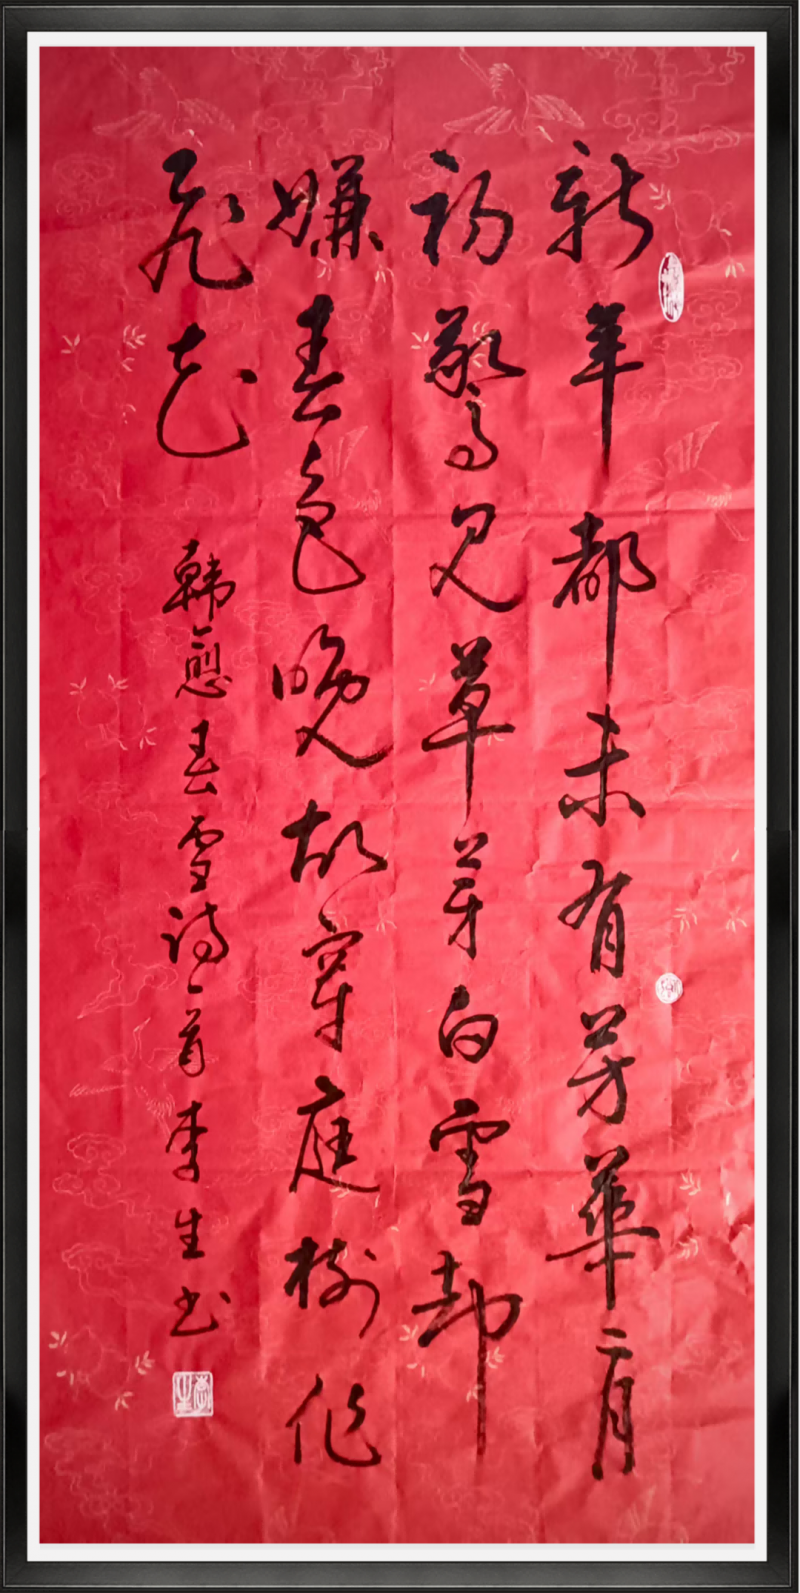 新年都未有芳華二月
初驚見草芽白雪却
嫌春色晚故穿庭樹作
飛花
韓愈春雪诗一首李生书